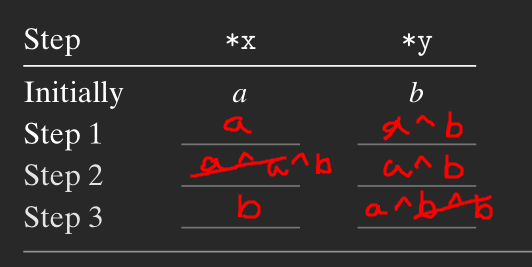 Step *x *y
Initially a b
Step 1 a a^b
Step 2 a^a^b a^b
Step 3 b a^b^b